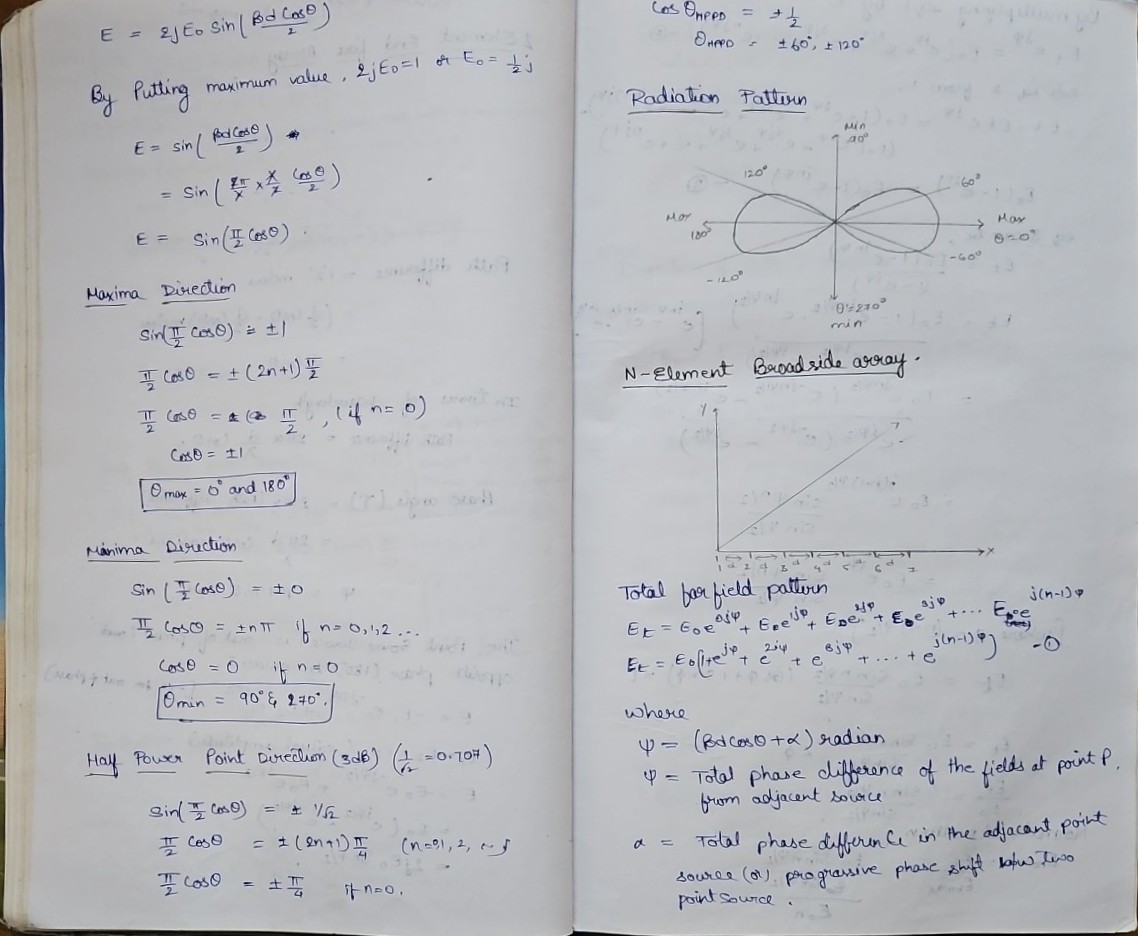 E = 2jE₀ Sin(βd Cosθ/2)
By Putting maximum value, 2jE₀=1 or E₀ = 1/2 j
E = sin(βd Cosθ/2)
= Sin(2π/λ × λ/2 Cosθ/2)
E = Sin(π/2 Cosθ).
Maxima Direction
Sin(π/2 Cosθ) = ±1
π/2 Cosθ = ±(2n+1) π/2
π/2 Cosθ = ± π/2, (if n=0)
Cosθ = ±1
θmax = 0° and 180°
Minima Direction
Sin(π/2 Cosθ) = ±0
π/2 Cosθ = ±nπ if n=0,1,2...
Cosθ = 0 if n=0
θmin = 90° & 270°.
Half Power Point Direction (3dB) (1/√2 = 0.707)
Sin(π/2 Cosθ) = ± 1/√2
π/2 Cosθ = ±(2n+1) π/4 (n=0,1,2,
π/2 Cosθ = ± π/4 if n=0.
Cos θHPPD = ± 1/2
θHPPD = ±60°, ±120°
Radiation Pattern
Min
90°
120°
60°
Max
180°
Max
θ=0°
-60°
-120°
θ=270°
min
N-Element Broadside array.
Y
1 d 2 d 3 d 4 d 5 d 6 d 7
X
Total far field pattern
Et = E₀e^0jψ + E₀e^1jψ + E₀e^2jψ + E₀e^3jψ + ... E₀e^j(n-1)ψ
Et = E₀[1+e^jψ + e^2jψ + e^3jψ + ... + e^j(n-1)ψ] -①
where
ψ = (βd cosθ + α) radian
ψ = Total phase difference of the fields at point P.
from adjacent source
α = Total phase difference in the adjacant point
source (or) progressive phase shift b/w two
point source.